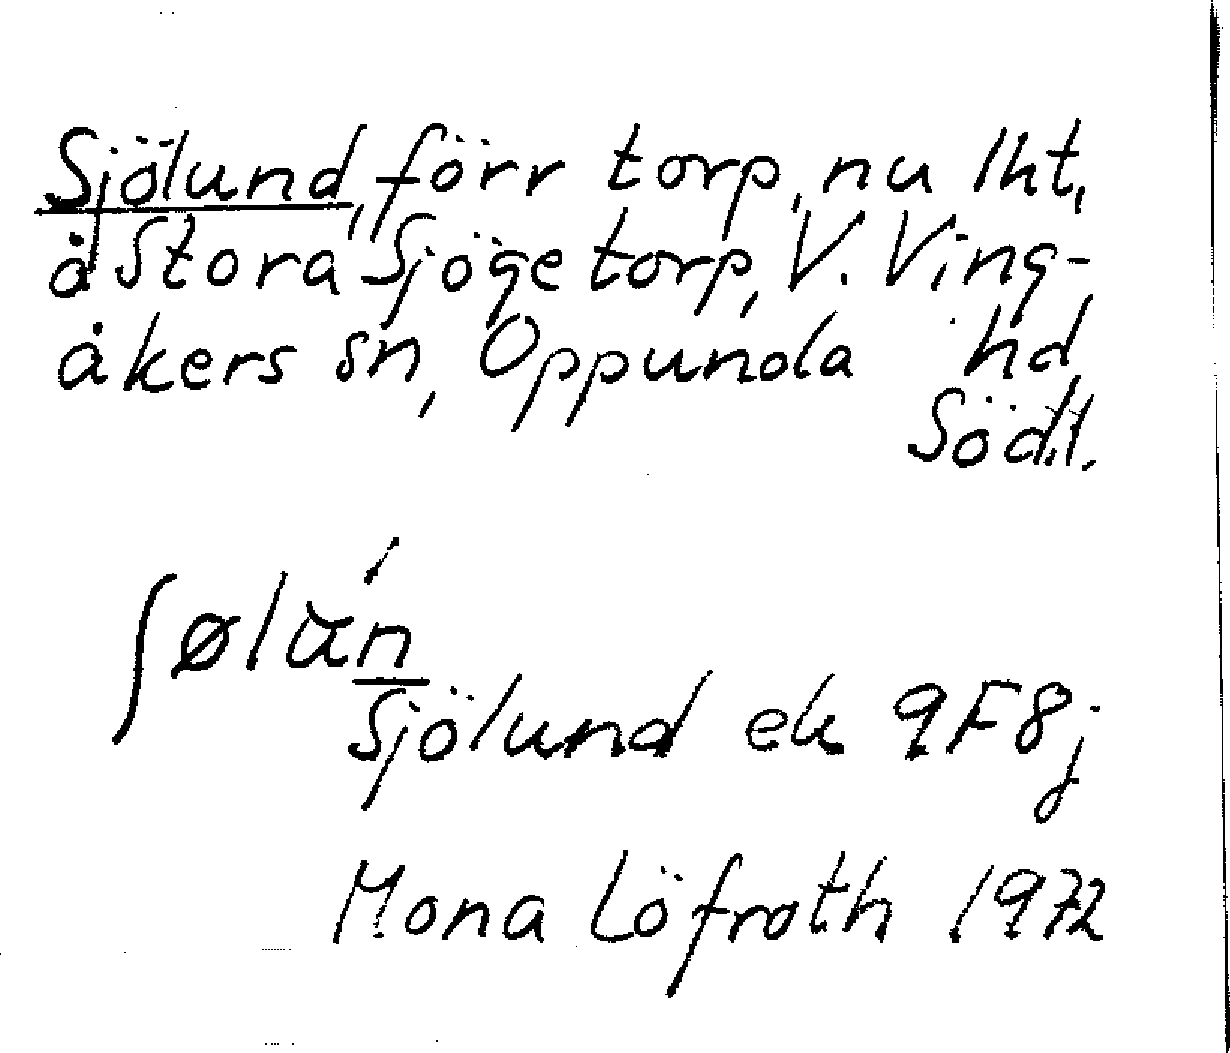 Sjölund, förr torp, nu lht,
å Stora Sjögetorp, V. Ving-
åkers sn, Oppunda hd,
Södl.
ʃølún
Sjölund ek 9F8j
Mona Löfroth 1972